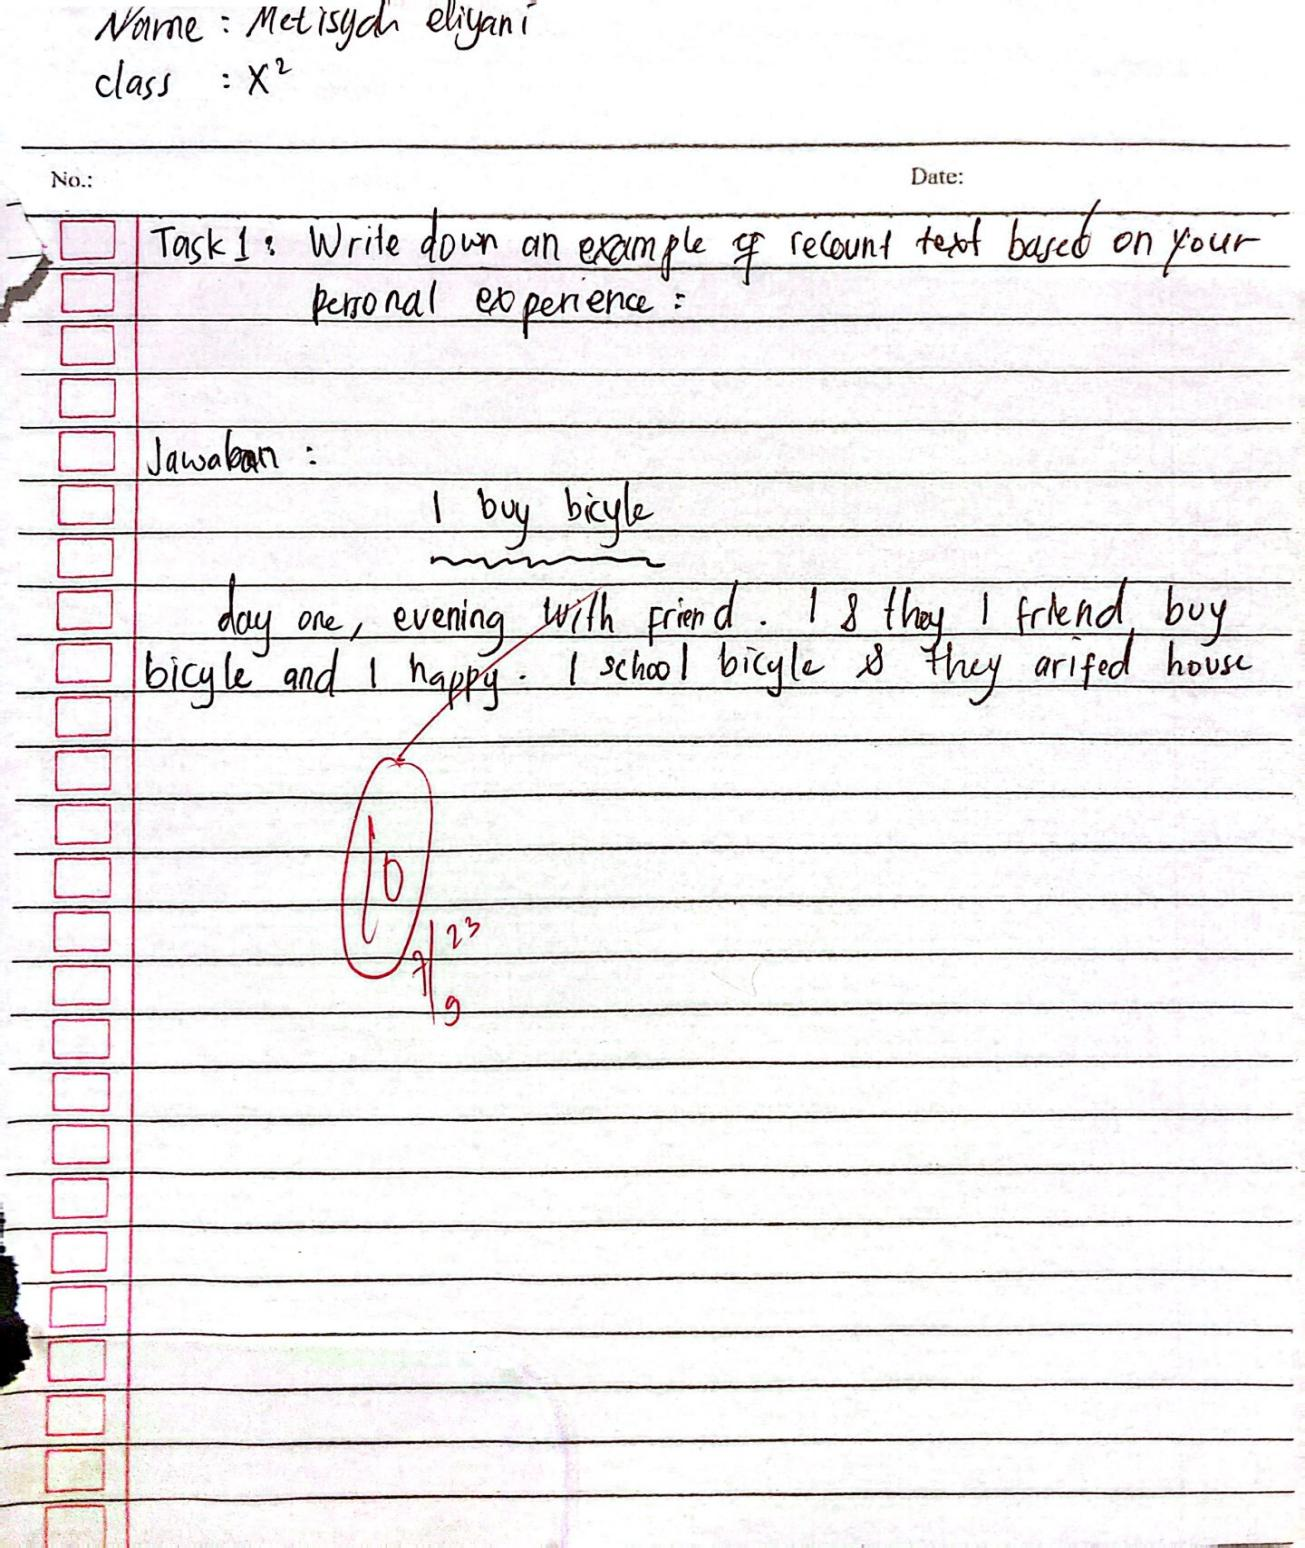 Name : Metisyah eliyani
class : X²
No.: Date:
Task 1 : Write down an example of recount text based on your
personal experience :
Jawaban :
I buy bicyle
day one, evening with friend. I & they I friend buy
bicyle and I happy. I school bicyle & they arifed house
10
7/9 23